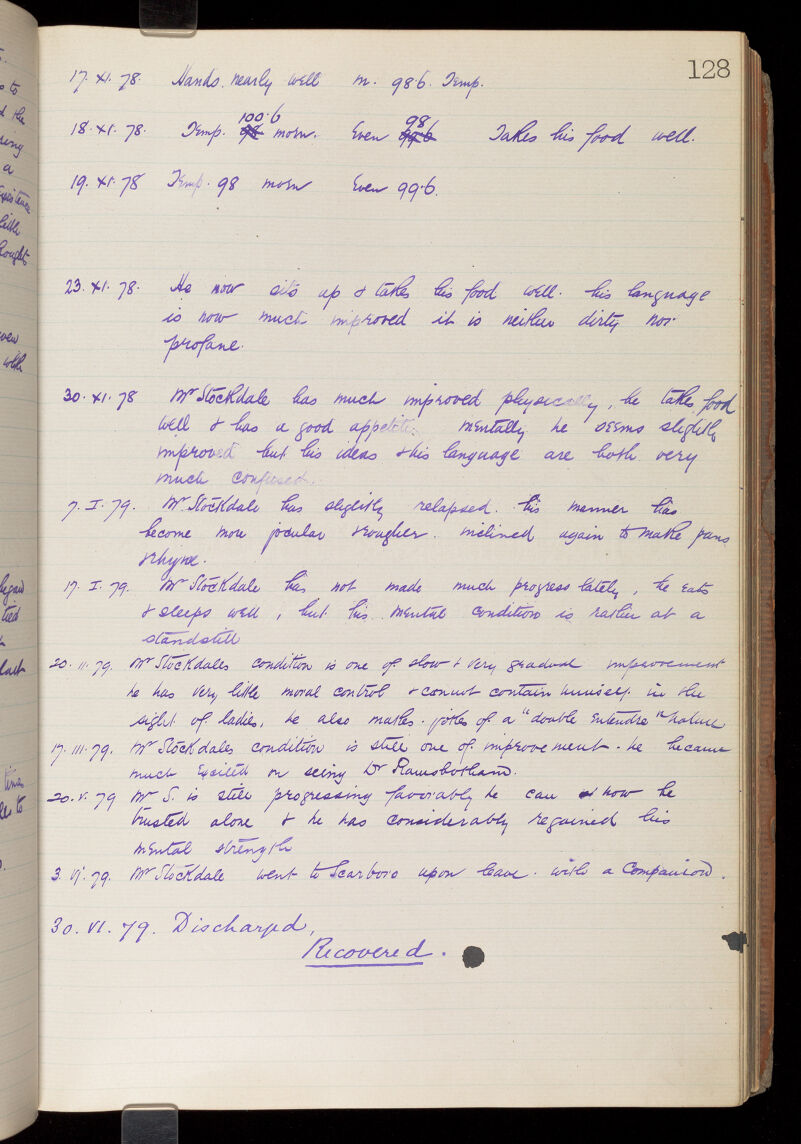 128
17. XI. 78. Hands nearly well m. 98.6. Temp.
18. XI. 78. Temp. 100.6 morn. Even 98 Takes his food well.
19. XI. 78 Temp. 98 morn Even 99.6.
23. XI. 78. He now sits up & takes his food well. his language
is now much improved it is neither dirty nor
profane.
30. XI. 78 Mr Stockdale has much improved physically, he takes food
well & has a good appetite. mentally he seems slightly
improved but his ideas & his language are both very
much confused.
7. I. 79. Mr. Stockdale has slightly relapsed. his manner has
become more jocular & rougher. inclined again to make puns
& rhyme.
17. I. 79. Mr Stockdale has not made much progress lately, he eats
& sleeps well, but his mental condition is rather at a
standstill
20. II. 79. Mr Stockdales condition is one of slow & very gradual improvement
he has very little moral control & cannot contain himself in the
sight of ladies, he also makes jokes of a "double entendre" nature
17. III. 79. Mr Stockdales condition is still one of improvement. he became
much excited on seeing Dr Ramsbotham.
20. V. 79 Mr S. is still progressing favorably he can now be
trusted alone & he has considerably regained his
mental strength
3. VI. 79. Mr Stockdale went to Scarboro upon leave. with a Companion.
30. VI. 79. Discharged,
Recovered.